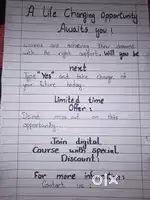 A Life Changing Opportunity
Awaits you!
women are achieving their dreams
with the right support. Will you be
next
Type "Yes" and take charge of
your future today.
Limited time
Offer:
Do not miss out on this
opportunity.
Join digital
Course with special
Discount!
For more information
Contact us
olx